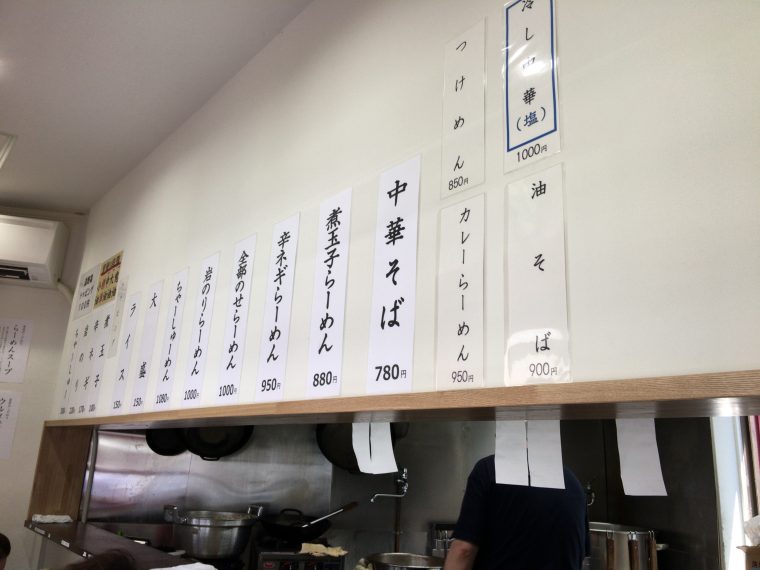 冷し中華(塩)
1000円
つけめん
850円
油そば
900円
カレーらーめん
950円
中華そば
780円
煮玉子らーめん
880円
辛ネギらーめん
950円
全部のせらーめん
1000円
岩のりらーめん
1000円
ちゃーしゅーめん
1080円
大盛
150円
ライス
150円
煮玉子
辛ネギ
岩のり
ちゃーしゅー
らーめんスープ